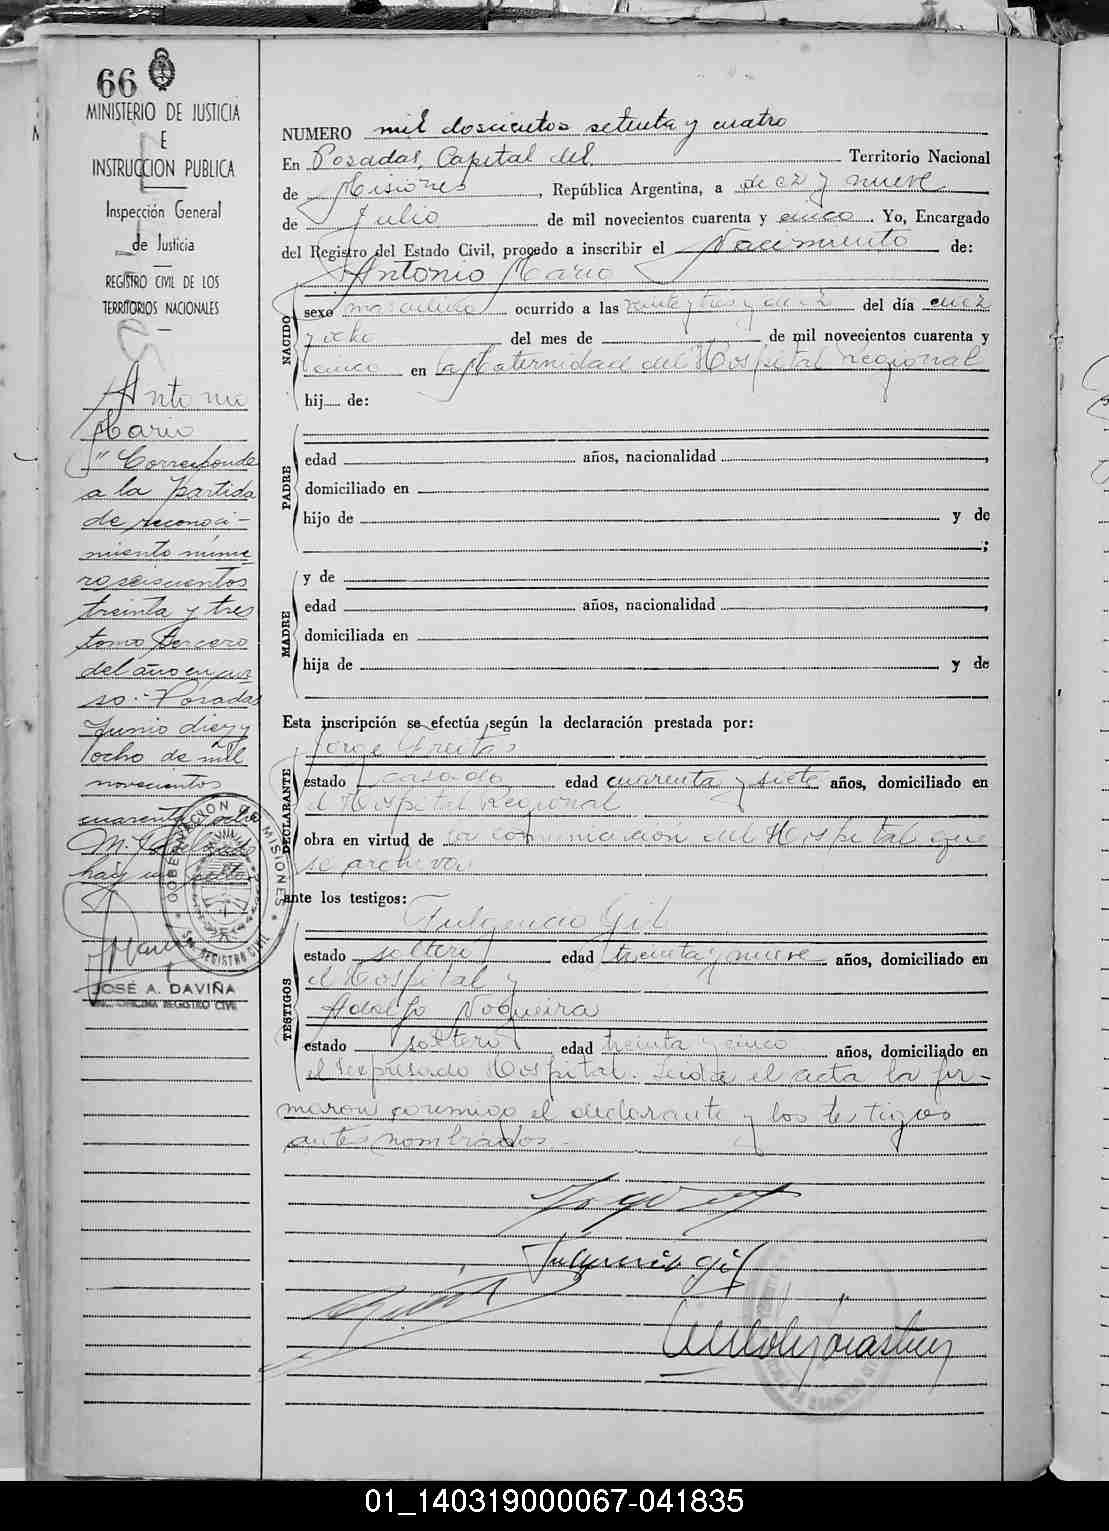 66
MINISTERIO DE JUSTICIA
E
INSTRUCCION PUBLICA
Inspección General
de Justicia
REGISTRO CIVIL DE LOS
TERRITORIOS NACIONALES
Antonio
Mario
"Corresponde
a la partida
de reconoci-
miento núme
ro seiscientos
treinta y tres
tomo tercero
del año en cur
so.- Posadas
Junio diez y
ocho de mil
novecientos
cuarenta y ocho
hay un sello
GOBERNACION DE MISIONES
REGISTRO CIVIL
JOSÉ A. DAVIÑA
OFICINA REGISTRO CIVIL
NUMERO mil doscientos setenta y cuatro
En Posadas, Capital del Territorio Nacional
de Misiones, República Argentina, a diez y nueve
de Julio de mil novecientos cuarenta y cinco. Yo, Encargado
del Registro del Estado Civil, procedo a inscribir el Nacimiento de:
Antonio Mario
NACIDO
sexo masculino ocurrido a las veinte y tres y diez del día diez
y ocho del mes de de mil novecientos cuarenta y
cinco en la Maternidad del Hospital regional
hij... de:
PADRE
edad años, nacionalidad ,
domiciliado en
hijo de y de
;
MADRE
y de
edad años, nacionalidad ,
domiciliada en
hija de y de
Esta inscripción se efectúa según la declaración prestada por:
Jorge Freitas
DECLARANTE
estado casado edad cuarenta y siete años, domiciliado en
el Hospital Regional
obra en virtud de la comunicación del Hospital que
se archiva
ante los testigos:
Fulgencio Gil
TESTIGOS
estado soltero edad treinta y nueve años, domiciliado en
el Hospital y
Adolfo Nogueira
estado soltero edad treinta y cinco años, domiciliado en
el expresado Hospital. Leida el acta la fir-
maron conmigo el declarante y los testigos
antes nombrados.-
Fulgencio Gil
01_140319000067-041835